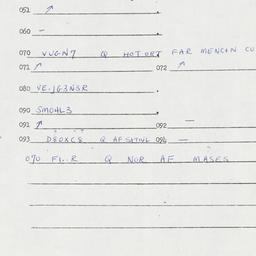 051 ↗
060 -
070 VUGN7 Q HOT ORT FAR MENCN CO
071 ↗ 072 ↗
080 VE.JG3NSR
090 SMOHL3
091 ↗ 092 —
093 D80XC8 Q AF 094 —
070 Q NOR AF MASES